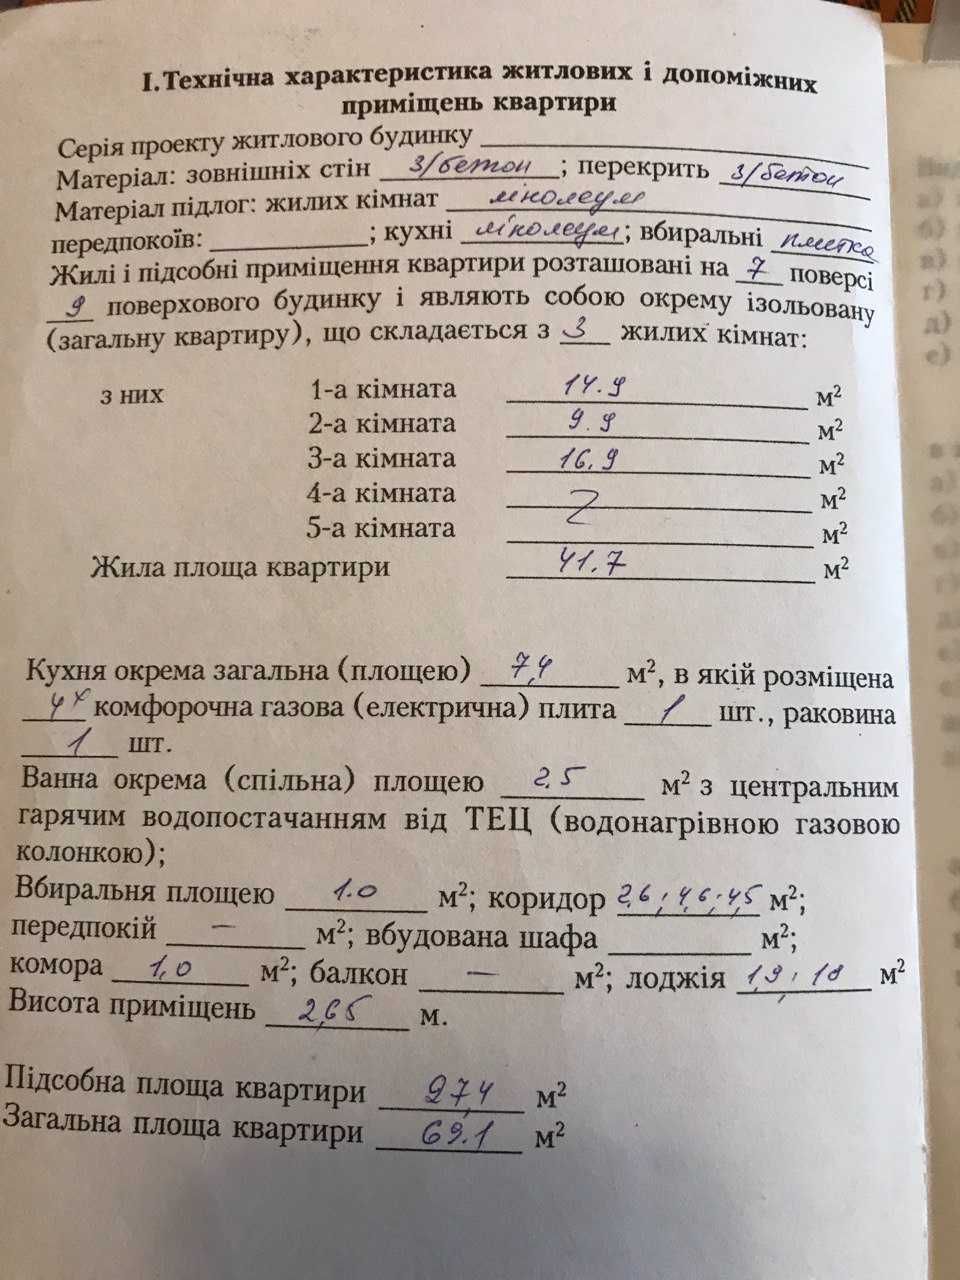 І.Технічна характеристика житлових і допоміжних
приміщень квартири
Серія проекту житлового будинку
Матеріал: зовнішніх стін з/бетон; перекрить з/бетон
Матеріал підлог: жилих кімнат лінолеум
передпокоїв: ; кухні лінолеум; вбиральні плитка
Жилі і підсобні приміщення квартири розташовані на 7 поверсі
9 поверхового будинку і являють собою окрему ізольовану
(загальну квартиру), що складається з 3 жилих кімнат:
з них 1-а кімната 14.9 м²
2-а кімната 9.9 м²
3-а кімната 16.9 м²
4-а кімната м²
5-а кімната м²
Жила площа квартири 41.7 м²
Кухня окрема загальна (площею) 7,4 м², в якій розміщена
4х комфорочна газова (електрична) плита 1 шт., раковина
1 шт.
Ванна окрема (спільна) площею 2,5 м² з центральним
гарячим водопостачанням від ТЕЦ (водонагрівною газовою
колонкою);
Вбиральня площею 1.0 м²; коридор 2,6; 4,6; 4,5 м²;
передпокій — м²; вбудована шафа м²;
комора 1,0 м²; балкон — м²; лоджія 1,9; 1,8 м²
Висота приміщень 2,65 м.
Підсобна площа квартири 27,4 м²
Загальна площа квартири 69.1 м²